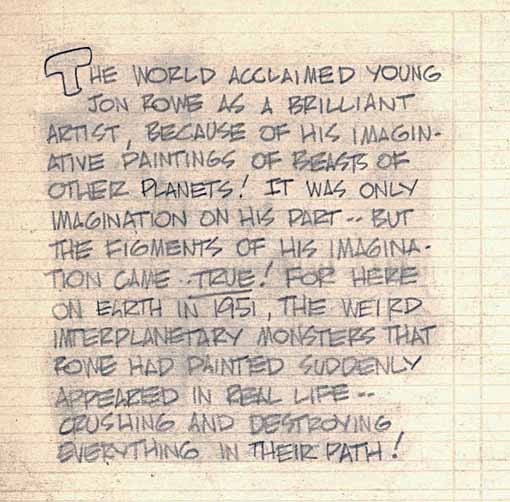 THE WORLD ACCLAIMED YOUNG
JON ROWE AS A BRILLIANT
ARTIST, BECAUSE OF HIS IMAGIN-
ATIVE PAINTINGS OF BEASTS OF
OTHER PLANETS! IT WAS ONLY
IMAGINATION ON HIS PART -- BUT
THE FIGMENTS OF HIS IMAGINA-
TION CAME -- TRUE! FOR HERE
ON EARTH IN 1951, THE WEIRD
INTERPLANETARY MONSTERS THAT
ROWE HAD PAINTED SUDDENLY
APPEARED IN REAL LIFE --
CRUSHING AND DESTROYING
EVERYTHING IN THEIR PATH!